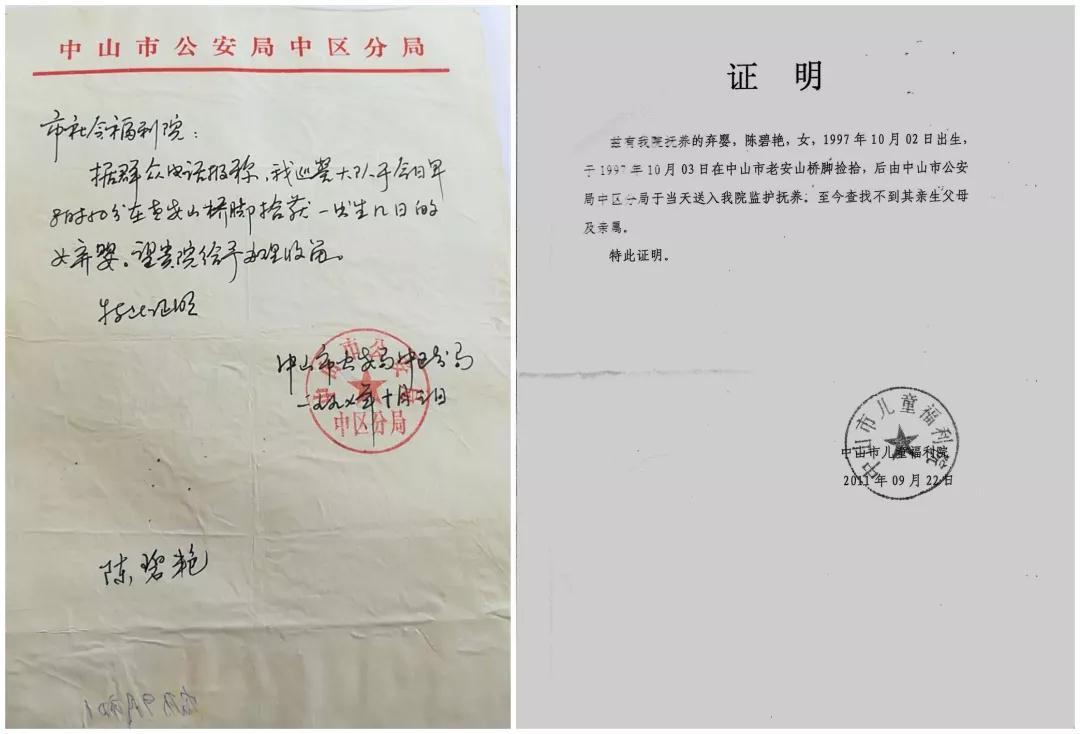 中山市公安局中区分局
市社会福利院：
据群众电话报称，我巡警大队于今日早
8时50分在老安山桥脚拾获一出生几日的
女弃婴。望贵院给予办理收留。
特此证明
中山市公安局中区分局
一九九七年十月三日
中山市公安局
中区分局
陈碧艳
证 明
兹有我院抚养的弃婴，陈碧艳，女，1997年10月02日出生，
于1997年10月03日在中山市老安山桥脚捡拾，后由中山市公安
局中区分局于当天送入我院监护抚养。至今查找不到其亲生父母
及亲属。
特此证明。
中山市儿童福利院
中山市儿童福利院
2011年09月22日